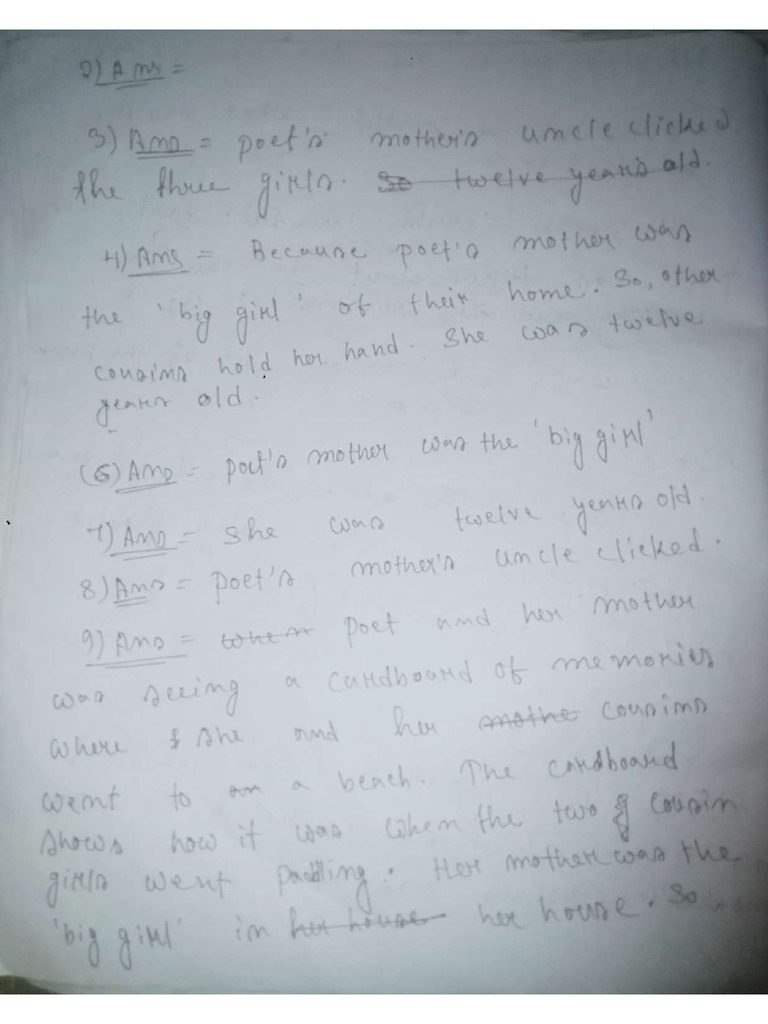 2) Ans =
3) Ans = poet's mother's uncle clicked
the three girls. So twelve years old.
4) Ans = Because poet's mother was
the 'big girl' of their home. So, other
cousins hold her hand. She was twelve
years old.
(6) Ans = poet's mother was the 'big girl'
7) Ans = She was twelve years old.
8) Ans = poet's mother's uncle clicked.
9) Ans = when poet and her mother
was seeing a cardboard of memories
where she and her mothe cousins
went to an a beach. The cardboard
shows how it was when the two cousin
girls went paddling. Her mother was the
'big girl' in her house her house. So